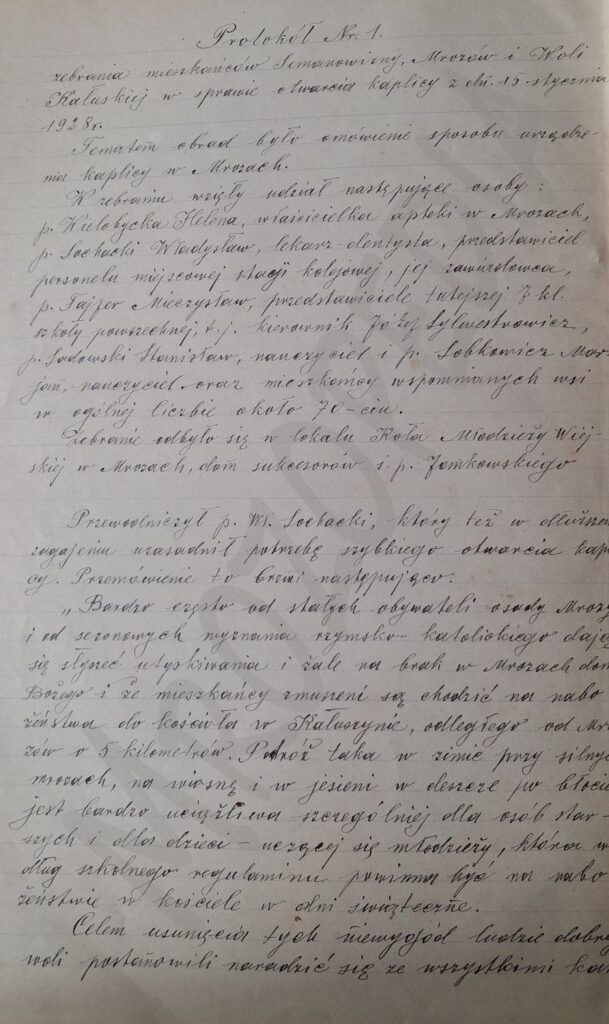 Protokół Nr. 1.
zebrania mieszkańców Semanowizny, Mrozów i Woli
Kałuskiej w sprawie otwarcia kaplicy z dn. 15 stycznia
1928r.
Tematem obrad było omówienie sposobu urządze-
nia kaplicy w Mrozach.
W zebraniu wzięły udział następujące osoby:
p. Kiełobycka Helena, właścicielka apteki w Mrozach,
p. Sochacki Władysław, lekarz-dentysta, przedstawiciel
personela miejscowej stacji kolejowej, jej zawiadowca,
p. Fajfer Mieczysław, przedstawiciele tutejszej 7 kl.
szkoły powszechnej, t.j. kierownik Józef Sylwestrowicz,
p. Sadowski Stanisław, nauczyciel i p. Sobkowicz Mar-
jan, nauczyciel oraz mieszkańcy wspomnianych wsi
w ogólnej liczbie około 70-ciu.
Zebranie odbyło się w lokalu Koła Młodzieży Wiej-
skiej w Mrozach, dom sukcesorów ś.p. Jomkowskiego
Przewodniczył p. Wł. Sochacki, który też w dłuższem
zagajeniu uzasadnił potrzebę szybkiego otwarcia kapli
cy. Przemówienie to brzmi następująco.
„Bardzo często od stałych obywateli osady Mrozy
i od sezonowych wyznania rzymsko-katolickiego dają
się słyszeć utyskiwania i żale na brak w Mrozach dom
Bożego i że mieszkańcy zmuszeni są chodzić na nabo
żeństwa do kościoła w Kałuszynie, odległego od Mro
zów o 5 kilometrów. Podróż taka w zimie przy silnych
mrozach, na wiosnę i w jesieni w deszcze po błocie
jest bardzo uciążliwa szczególniej dla osób star-
szych i dla dzieci - uczącej się młodzieży, która w
dług szkolnego regulaminu powinna być na nabo
żeństwie w kościele w dni świąteczne.
Celem usunięcia tych niewygód ludzie dobrej
woli postanowili naradzić się ze wszystkimi kato